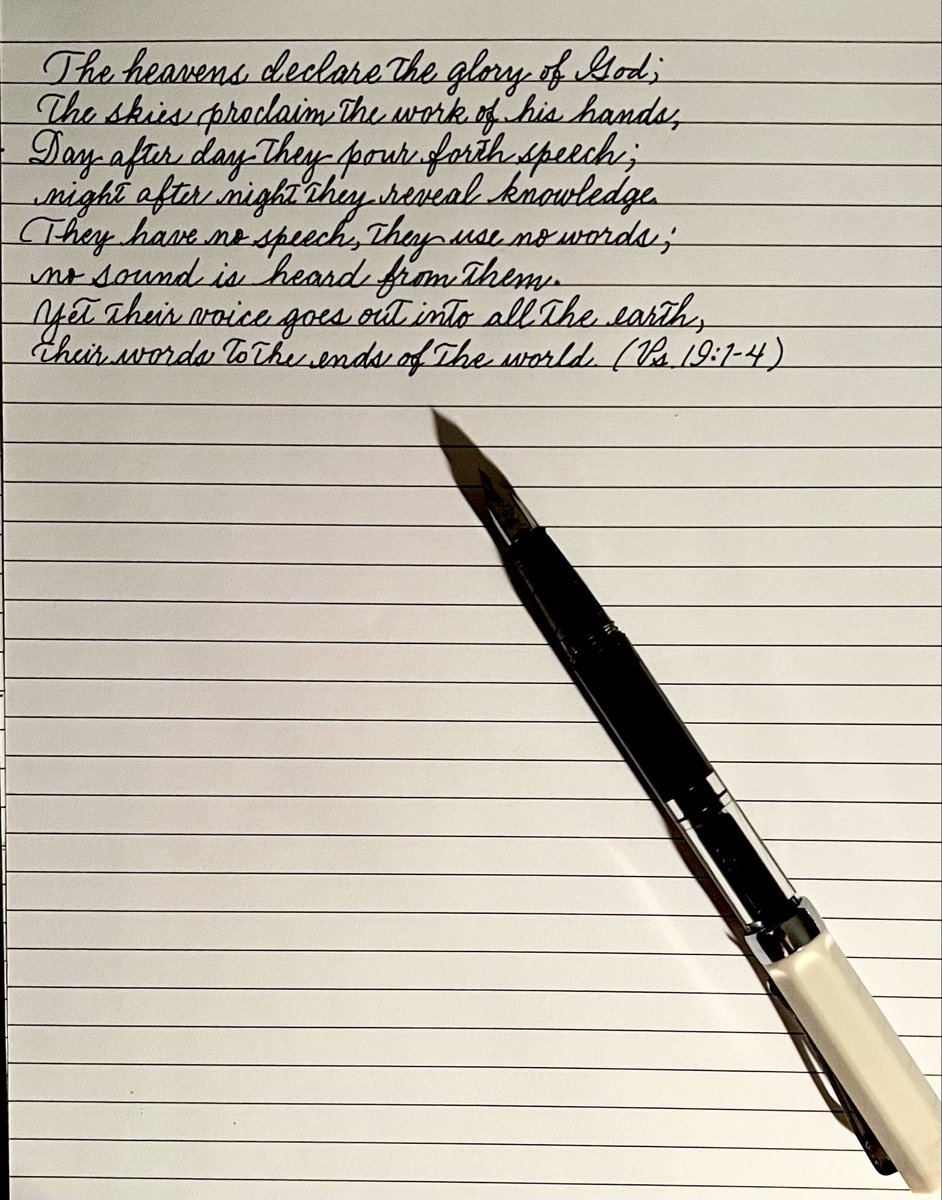 The heavens declare the glory of God;
The skies proclaim the work of his hands,
Day after day they pour forth speech;
night after night they reveal knowledge.
They have no speech, they use no words;
no sound is heard from them.
Yet their voice goes out into all the earth,
their words to the ends of the world. (Ps. 19:1-4)